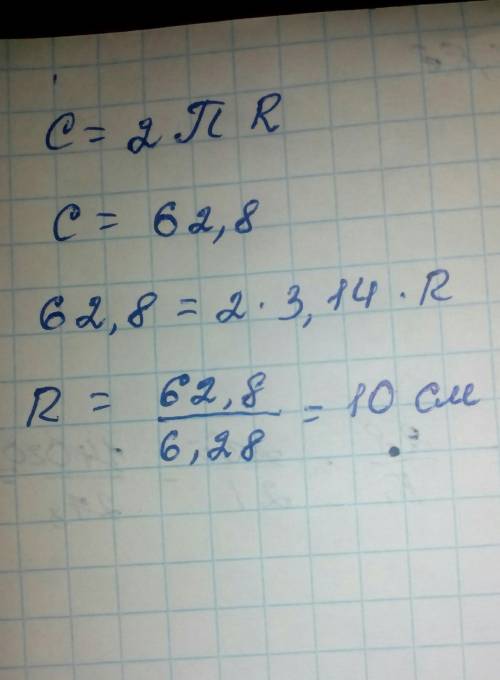 C = 2 П R
C = 62,8
62,8 = 2 · 3,14 · R
R = 62,8 / 6,28 = 10 см